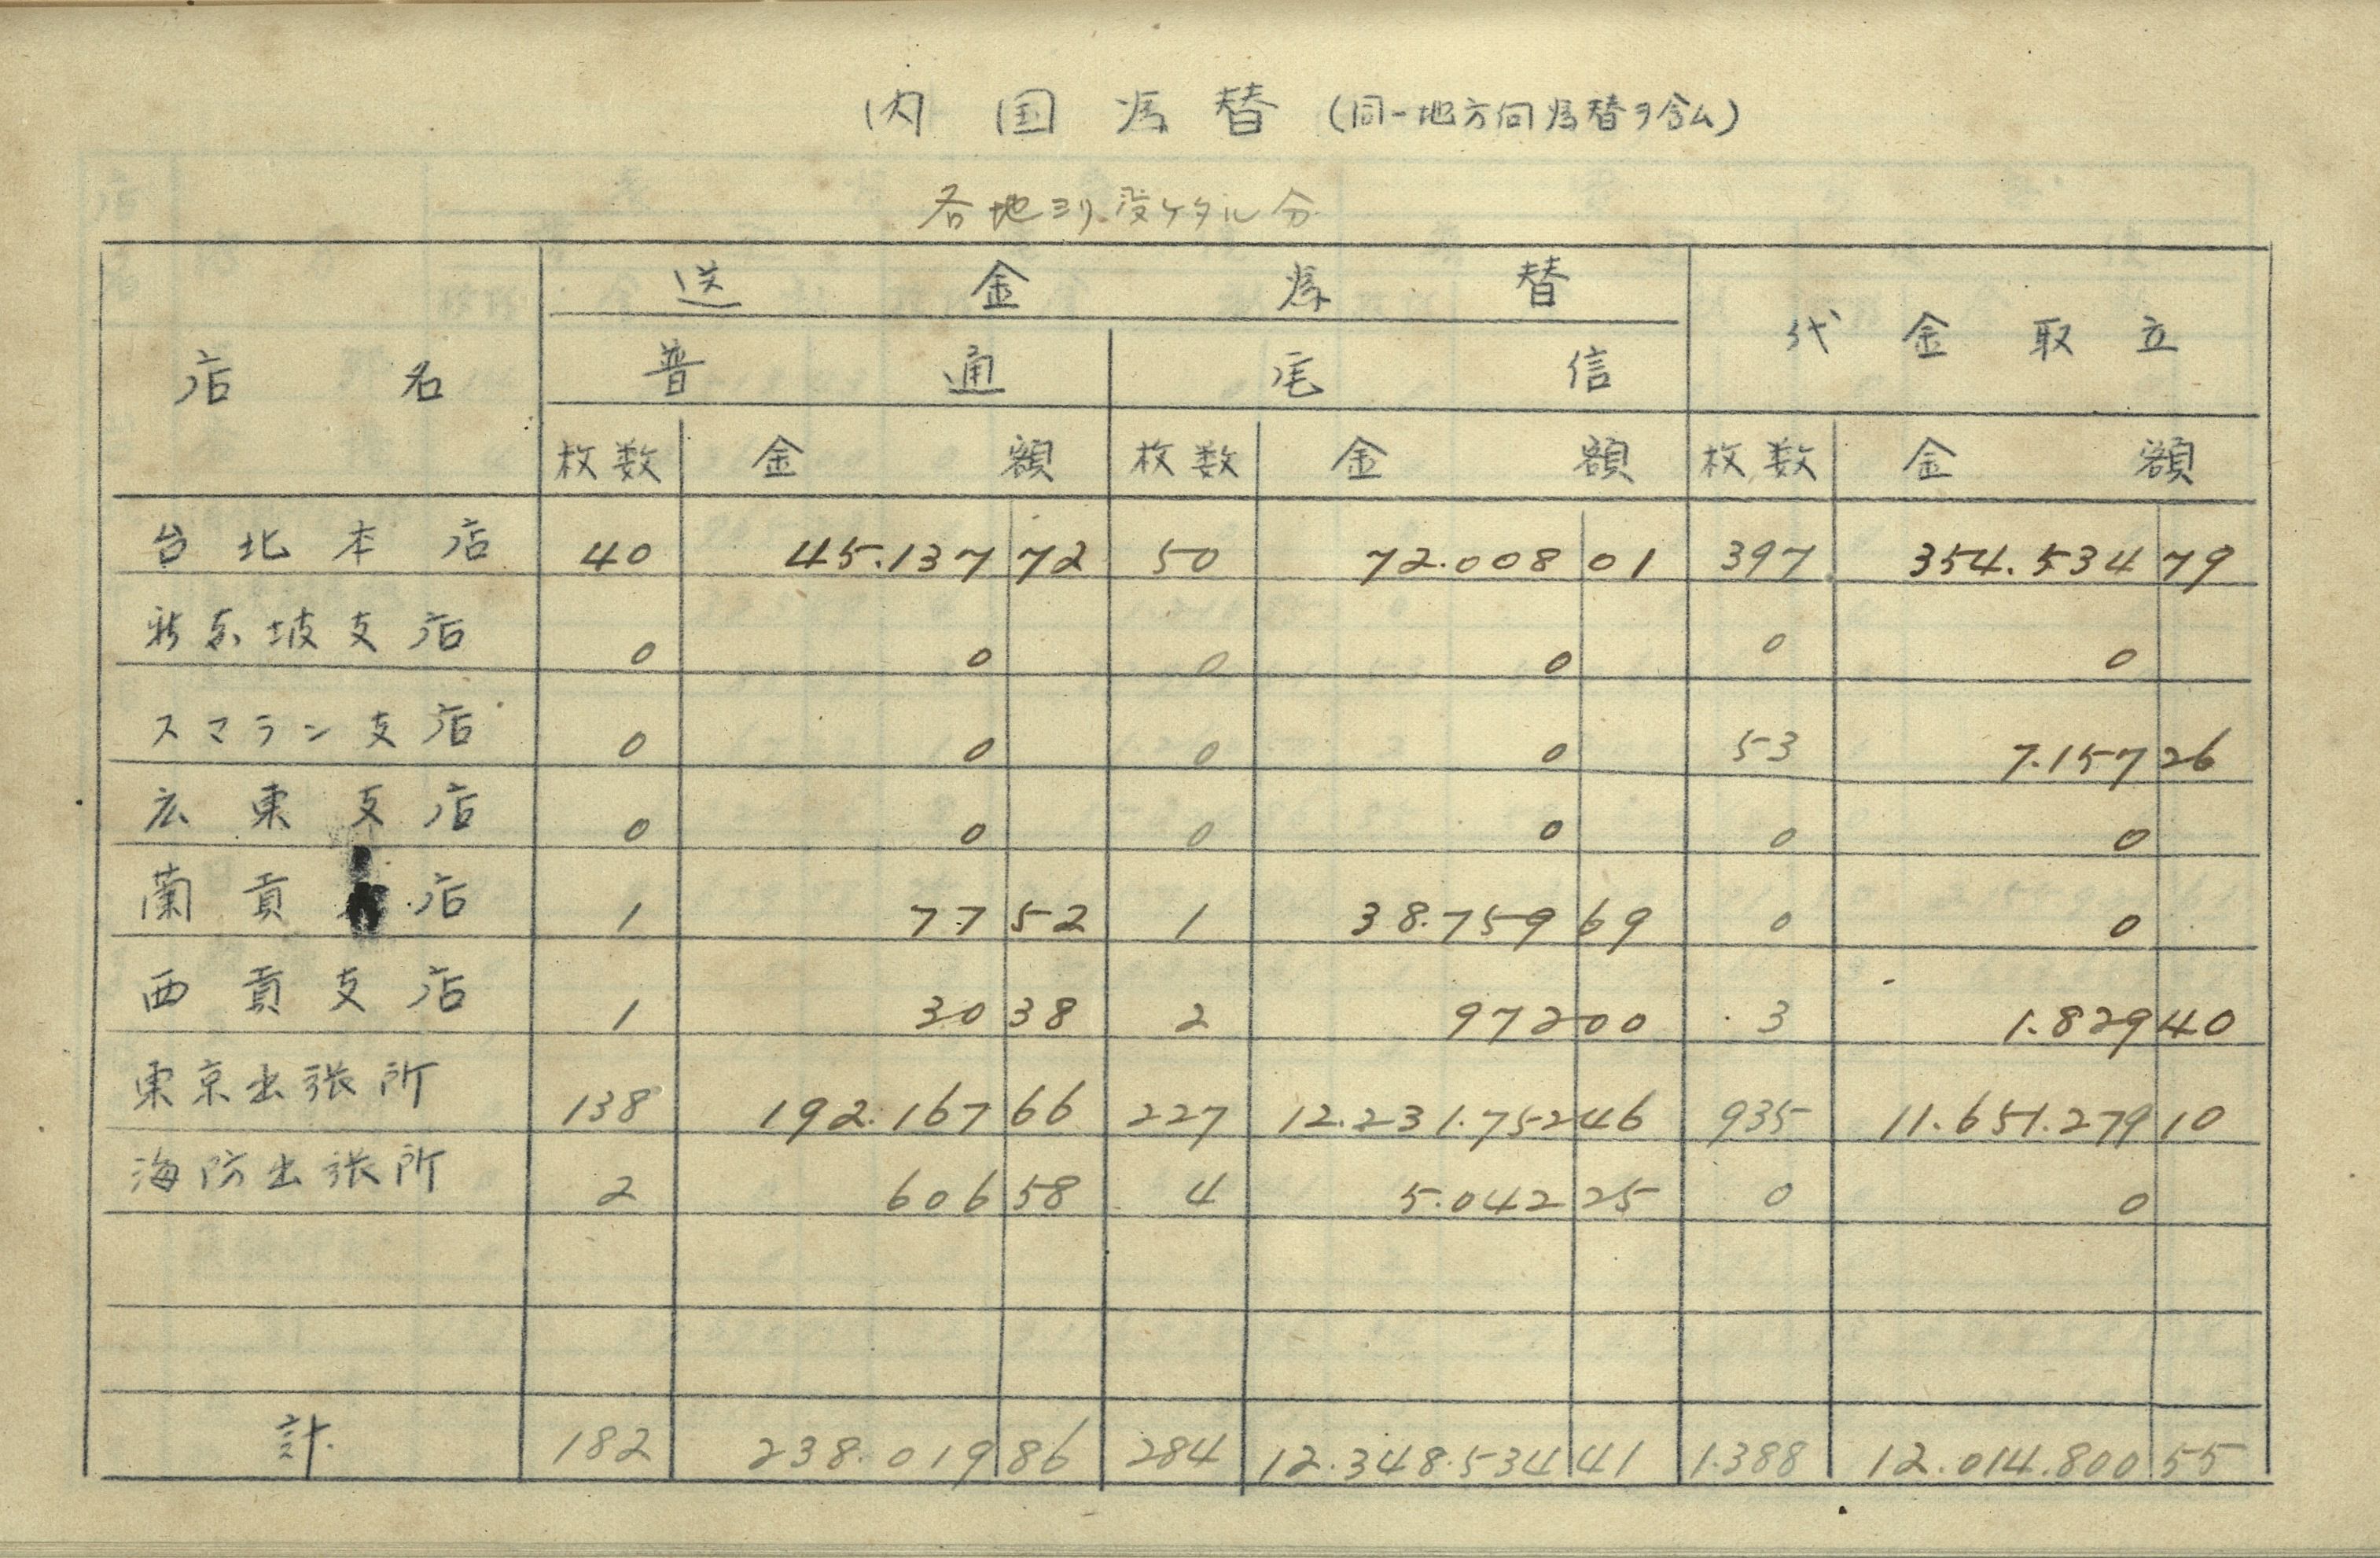 内国為替(同一地方向為替ヲ含ム)
各地ヨリ受ケタル分
店名 送金為替 代金取立
普通 電信
枚数 金額 枚数 金額 枚数 金額
台北本店 40 45.137 72 50 72.008 01 397 354.534 79
新嘉坡支店 0 0 0 0 0 0
スマラン支店 0 0 0 0 53 7.157 26
広東支店 0 0 0 0 0 0
蘭貢 店 1 77 52 1 38.759 69 0 0
西貢支店 1 30 38 2 972 00 3 1.829 40
東京出張所 138 192.167 66 227 12.231.752 46 935 11.651.279 10
海防出張所 2 606 58 4 5.042 25 0 0
計 182 238.019 86 284 12.348.534 41 1.388 12.014.800 55